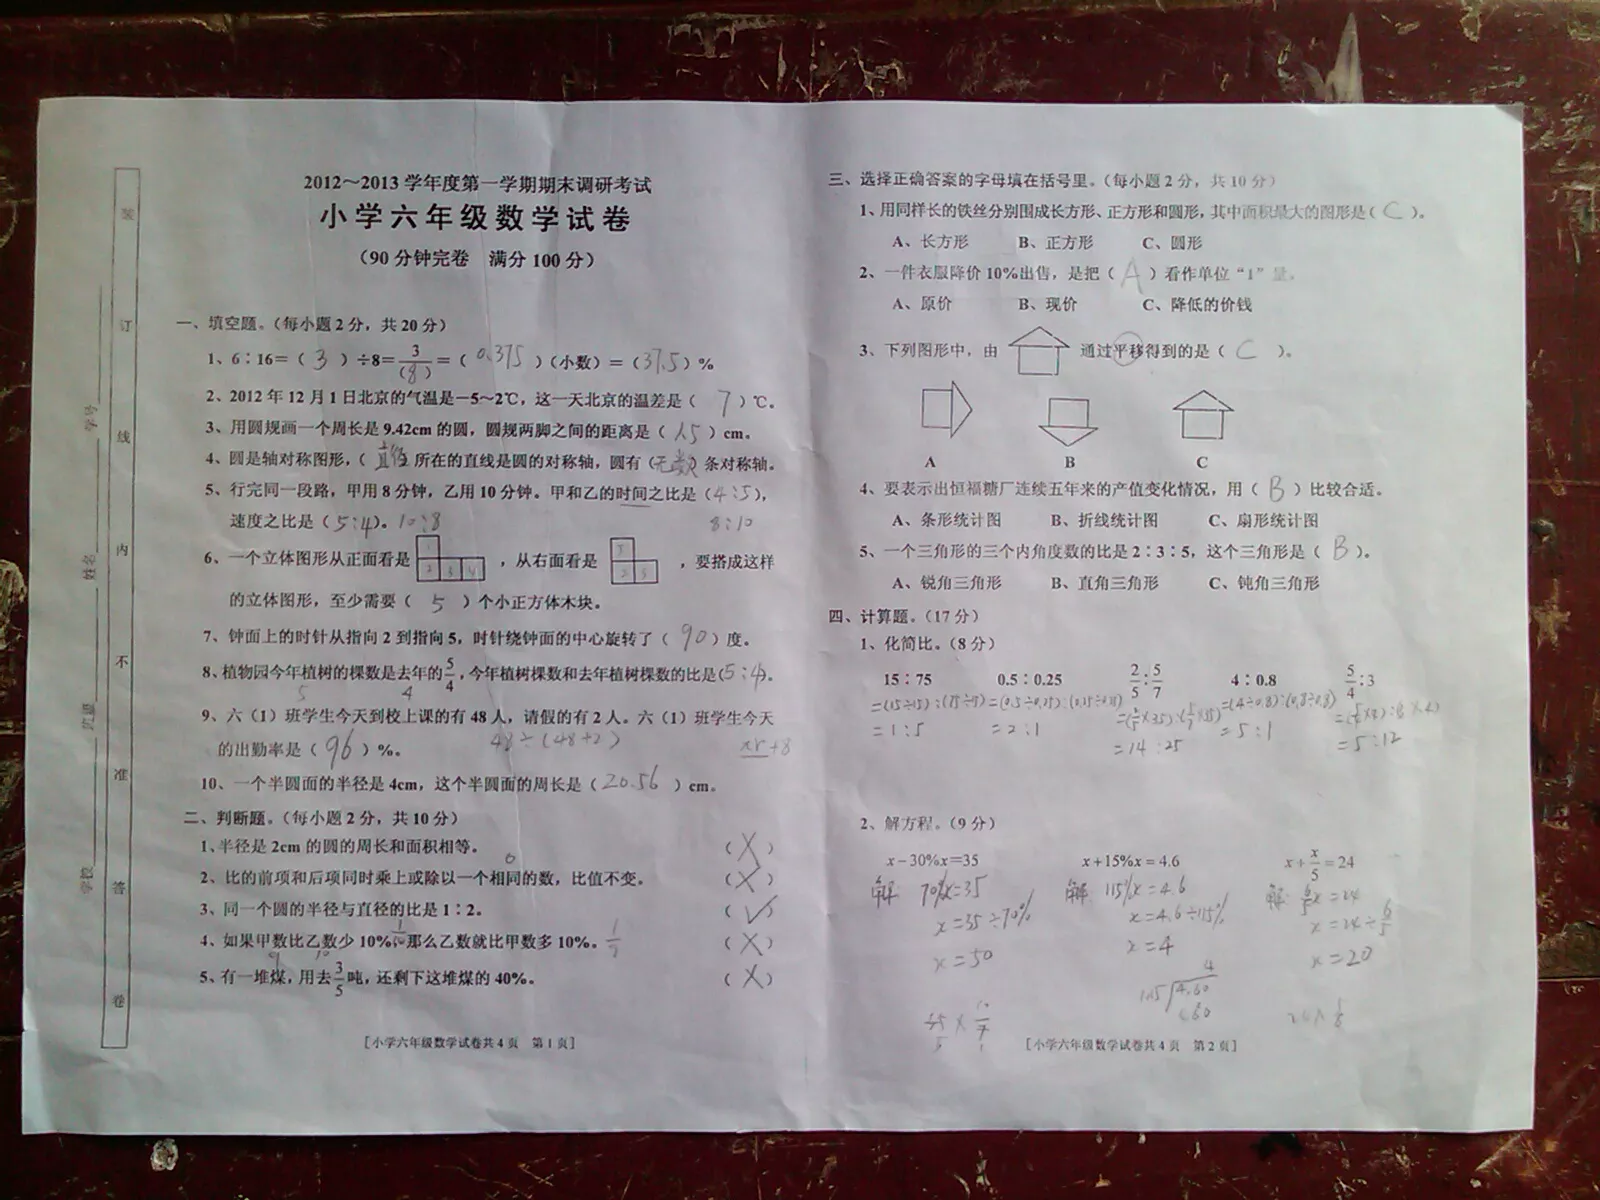 2012～2013 学年度第一学期期末调研考试
小学六年级数学试卷
（90 分钟完卷　满分 100 分）
装
订
线
内
不
准
答
卷
学号
姓名
班级
学校
一、填空题。（每小题 2 分，共 20 分）
1、6∶16＝（ 3 ）÷8＝3/(8)＝（ 0.375 ）（小数）＝（37.5）%
2、2012 年 12 月 1 日北京的气温是－5～2℃，这一天北京的温差是（ 7 ）℃。
3、用圆规画一个周长是 9.42cm 的圆，圆规两脚之间的距离是（1.5）cm。
4、圆是轴对称图形，（直径 所在的直线是圆的对称轴，圆有（无数）条对称轴。
5、行完同一段路，甲用 8 分钟，乙用 10 分钟。甲和乙的时间之比是（4∶5），
速度之比是（5∶4）。10∶8 8∶10
6、一个立体图形从正面看是 1 2 3 4 ，从右面看是 5 2 5 ，要搭成这样
的立体图形，至少需要（ 5 ）个小正方体木块。
7、钟面上的时针从指向 2 到指向 5，时针绕钟面的中心旋转了（ 90 ）度。
8、植物园今年植树的棵数是去年的5/4，今年植树棵数和去年植树棵数的比是（5∶4）。
5 4
9、六（1）班学生今天到校上课的有 48 人，请假的有 2 人。六（1）班学生今天
的出勤率是（ 96 ）%。 48÷(48+2) πr+8
10、一个半圆面的半径是 4cm，这个半圆面的周长是（20.56 ）cm。
二、判断题。（每小题 2 分，共 10 分）
1、半径是 2cm 的圆的周长和面积相等。 （ × ）
0
2、比的前项和后项同时乘上或除以一个相同的数，比值不变。 （ × ）
3、同一个圆的半径与直径的比是 1∶2。 （ √ ）
4、如果甲数比乙数少 10%，1/10 那么乙数就比甲数多 10%。 1/9 （ × ）
9 10
5、有一堆煤，用去3/5吨，还剩下这堆煤的 40%。 （ × ）
［小学六年级数学试卷共 4 页　第 1 页］
三、选择正确答案的字母填在括号里。（每小题 2 分，共 10 分）
1、用同样长的铁丝分别围成长方形、正方形和圆形，其中面积最大的图形是（ C ）。
A、长方形 B、正方形 C、圆形
2、一件衣服降价 10%出售，是把（ A ）看作单位“1”量。
A、原价 B、现价 C、降低的价钱
3、下列图形中，由 通过平移得到的是（ C ）。
A B C
4、要表示出恒福糖厂连续五年来的产值变化情况，用（ B ）比较合适。
A、条形统计图 B、折线统计图 C、扇形统计图
5、一个三角形的三个内角度数的比是 2∶3∶5，这个三角形是（ B ）。
A、锐角三角形 B、直角三角形 C、钝角三角形
四、计算题。（17 分）
1、化简比。（8 分）
15∶75 0.5∶0.25 2/5∶5/7 4∶0.8 5/4∶3
=(15÷15)∶(75÷15) =(0.5÷0.25)∶(0.25÷0.25) =(2/5×35)∶(5/7×35) =(4÷0.8)∶(0.8÷0.8) =(5/4×4)∶(3×4)
=1∶5 =2∶1 =14∶25 =5∶1 =5∶12
2、解方程。（9 分）
x－30%x＝35 x＋15%x＝4.6 x＋x/5＝24
解: 70%x=35 解: 115%x=4.6 解: 6/5x=24
x=35÷70% x=4.6÷115% x=24÷6/5
x=50 x=4 x=20
4
1.15 4.60
460
35×10/7
5 1
［小学六年级数学试卷共 4 页　第 2 页］